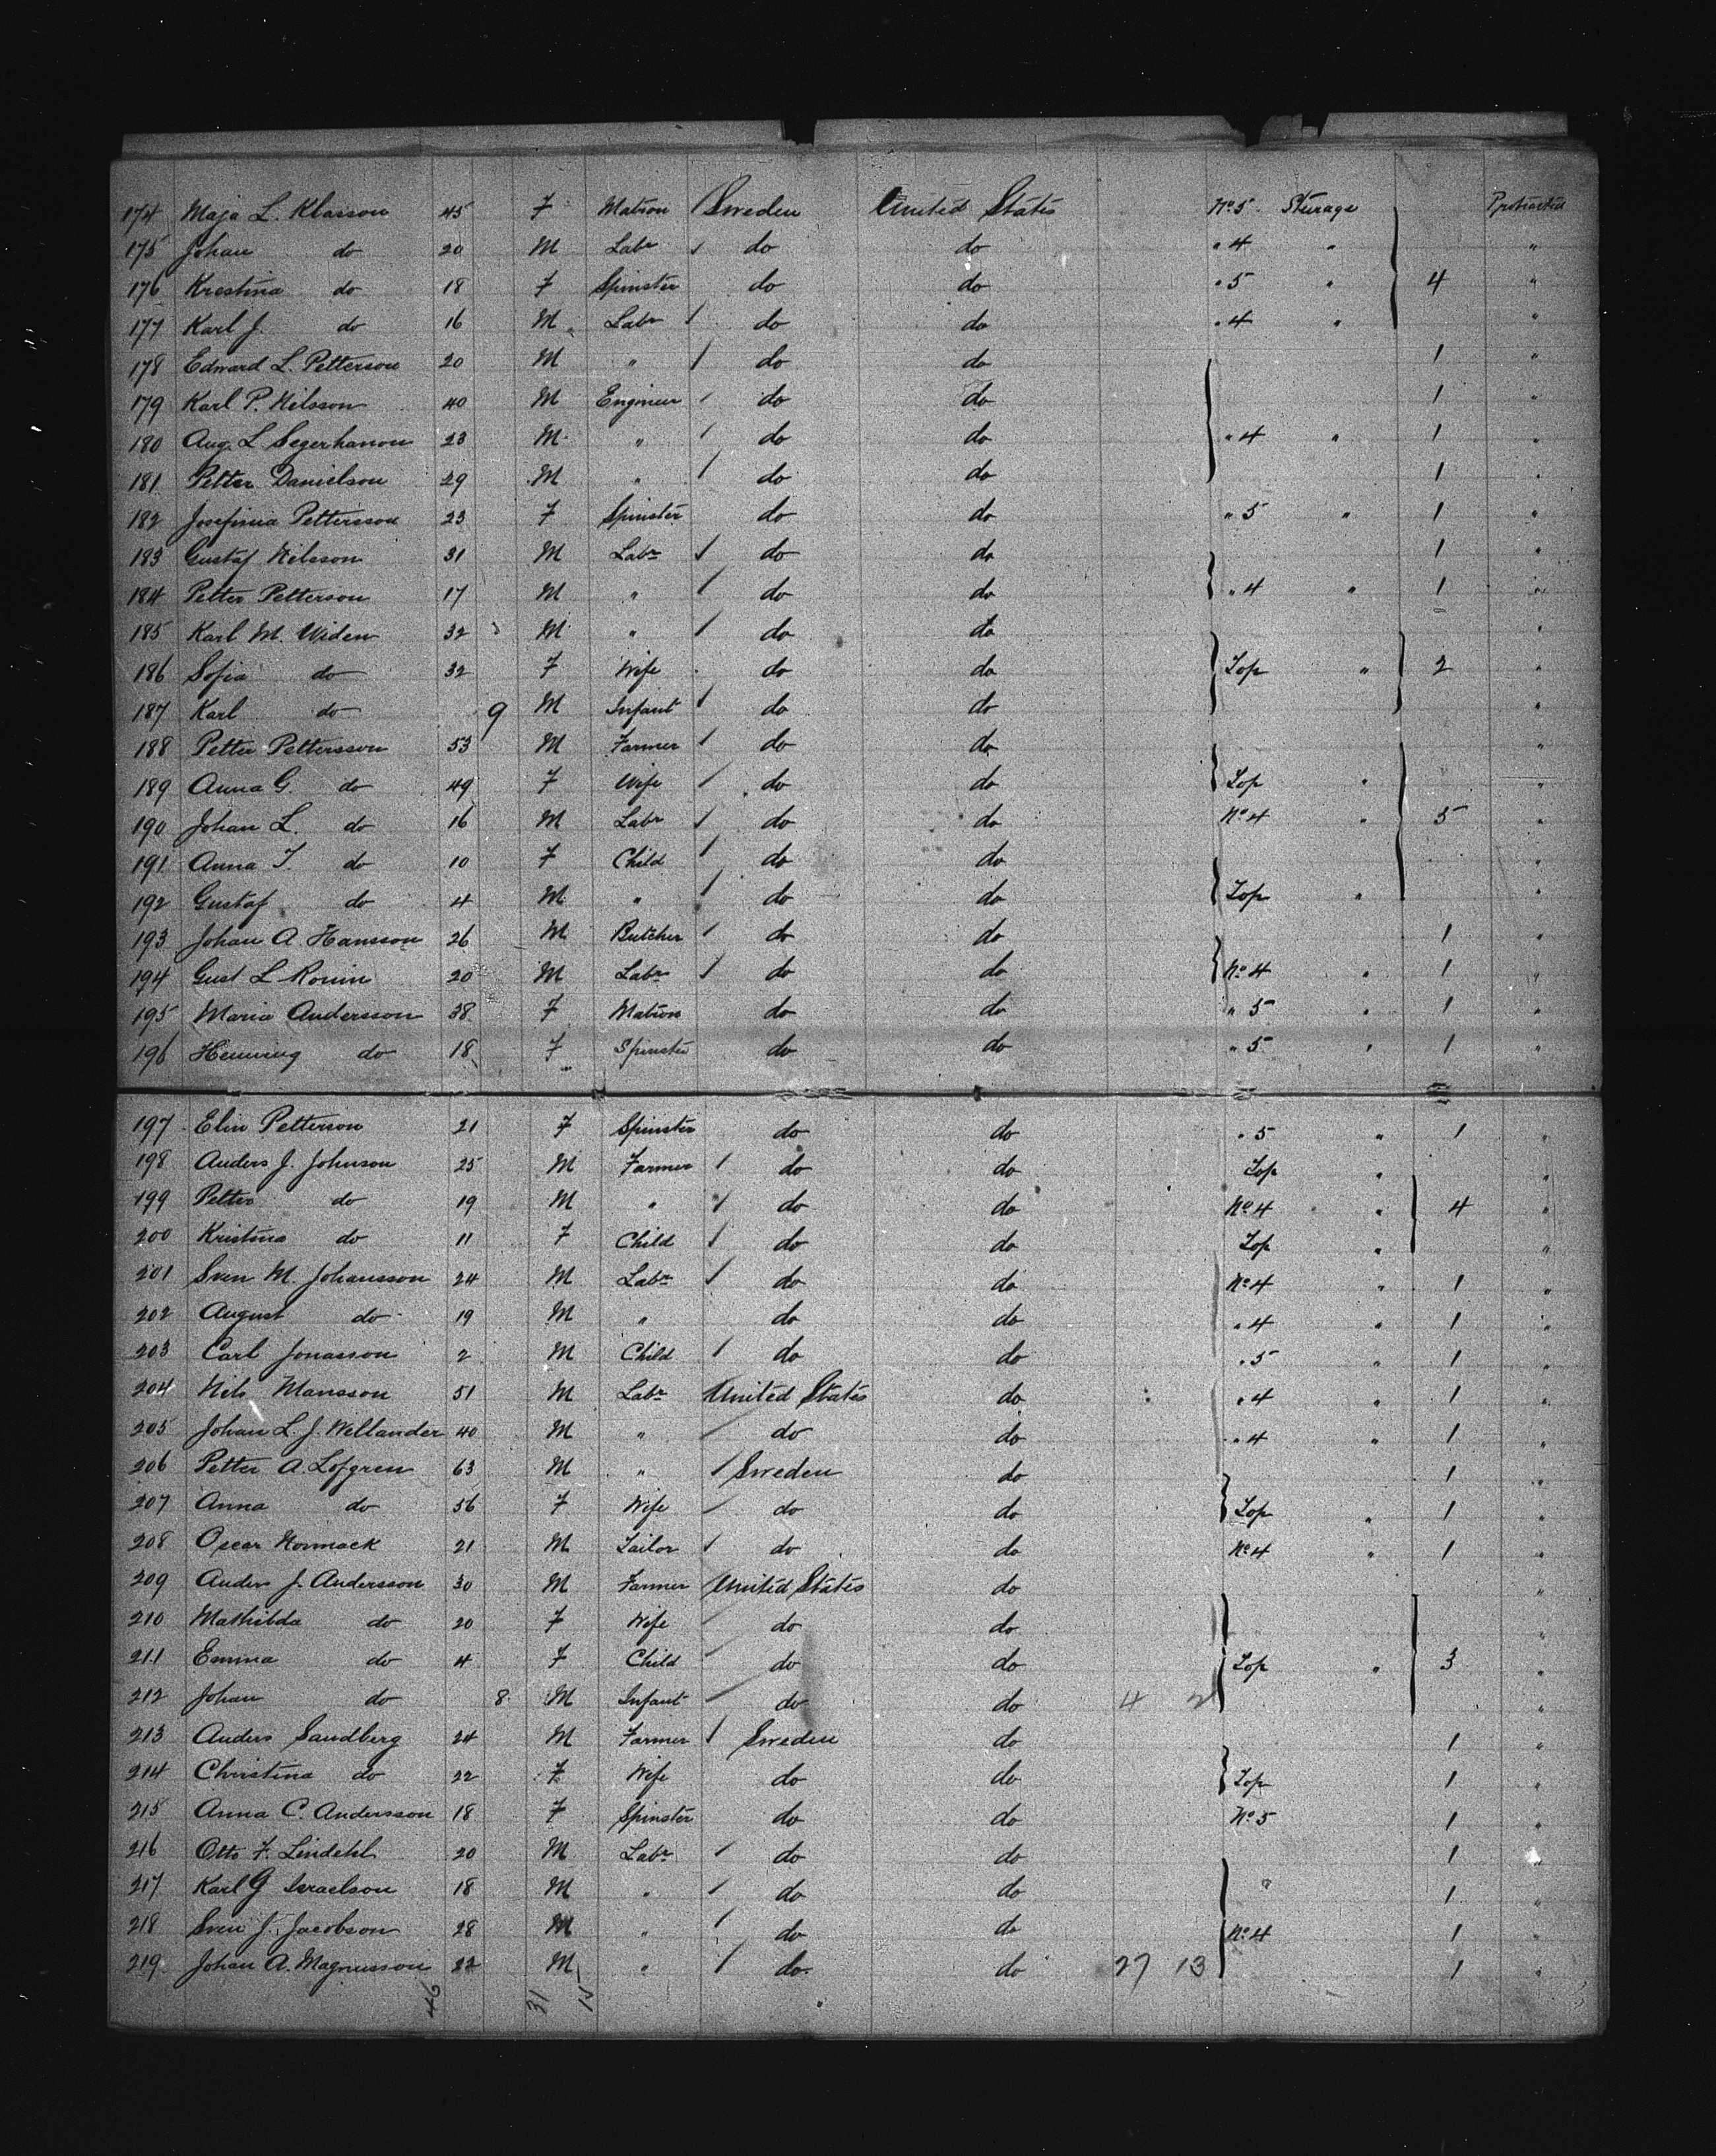 174 Maja L. Klasson 45 F Matron Sweden United States No 5 Steerage Protracted
175 Johan do 20 M Labr do do " 4 " "
176 Krestina do 18 F Spinster do do " 5 " 4 "
177 Karl J. do 16 M Labr do do " 4 " "
178 Edward L. Petterson 20 M " do do 1 "
179 Karl P. Nilsson 40 M Engineer do do 1 "
180 Aug. L Segerhanon 23 M " do do " 4 " 1 "
181 Petter Danielson 29 M " do do 1 "
182 Josefinia Pettersson 23 F Spinster do do " 5 " 1 "
183 Gustaf Nilsson 31 M Labr do do 1 "
184 Petter Petterson 17 M " do do " 4 " 1 "
185 Karl M. Widen 32 M " do do "
186 Sofia do 32 F Wife do do Top " 2 "
187 Karl do 9 M Infant do do "
188 Petter Pettersson 53 M Farmer do do "
189 Anna G. do 49 F Wife do do Top " "
190 Johan L. do 16 M Labr do do No 4 " 5 "
191 Anna T. do 10 F Child do do "
192 Gustaf do 4 M " do do Top " "
193 Johan A. Hansson 26 M Butcher do do 1 "
194 Gust L Ronin 20 M Labr do do No 4 " 1 "
195 Maria Andersson 38 F Matron do do " 5 " 1 "
196 Henning do 18 F Spinster do do " 5 " 1 "
197 Elin Petterson 21 F Spinster do do " 5 " 1 "
198 Anders J. Johnson 25 M Farmer do do Top " "
199 Petter do 19 M " do do No 4 " 4 "
200 Kristina do 11 F Child do do Top " "
201 Sven M. Johansson 24 M Labr do do No 4 " 1 "
202 August do 19 M " do do " 4 " 1 "
203 Carl Jonasson 2 M Child do do " 5 " 1 "
204 Nils Mansson 51 M Labr United States do " 4 " 1 "
205 Johan L. J. Wellander 40 M " do do " 4 " 1 "
206 Petter A. Lofgren 63 M " Sweden do 1 "
207 Anna do 56 F Wife do do Top " 1 "
208 Oscar Normack 21 M Tailor do do No 4 " 1 "
209 Anders J. Andersson 30 M Farmer United States do "
210 Mathilda do 20 F Wife do do "
211 Emma do 4 F Child do do Top " 3 "
212 Johan do 8 M Infant do do 4 2 "
213 Anders Sandberg 24 M Farmer Sweden do 1 "
214 Christina do 22 F Wife do do Top 1 "
215 Anna C. Andersson 18 F Spinster do do No 5 1 "
216 Otto F. Lindehl 20 M Labr do do 1 "
217 Karl G Israelson 18 M " do do " 1 "
218 Sven J. Jacobson 28 M " do do No 4 1 "
219 Johan A. Magnusson 22 M " do do 27 13 1 "
46 31 15